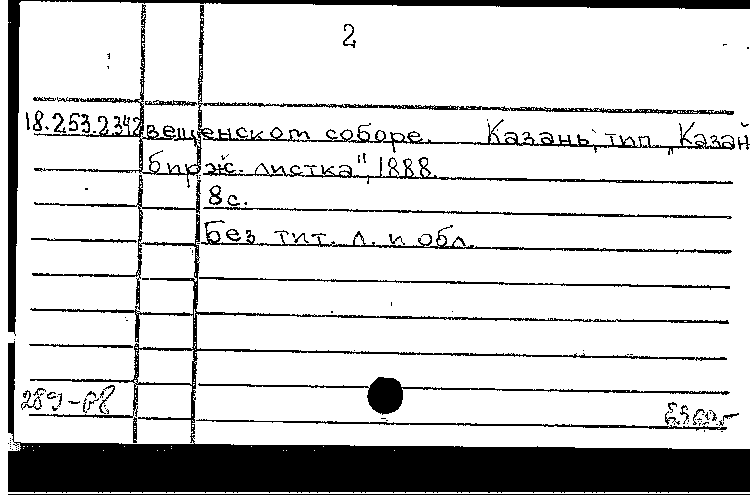 2
18.253.2342 вещенском соборе. Казань, тип. „Казан
бирж. листка", 1888.
8с.
Без тит. л. и обл.
289-68